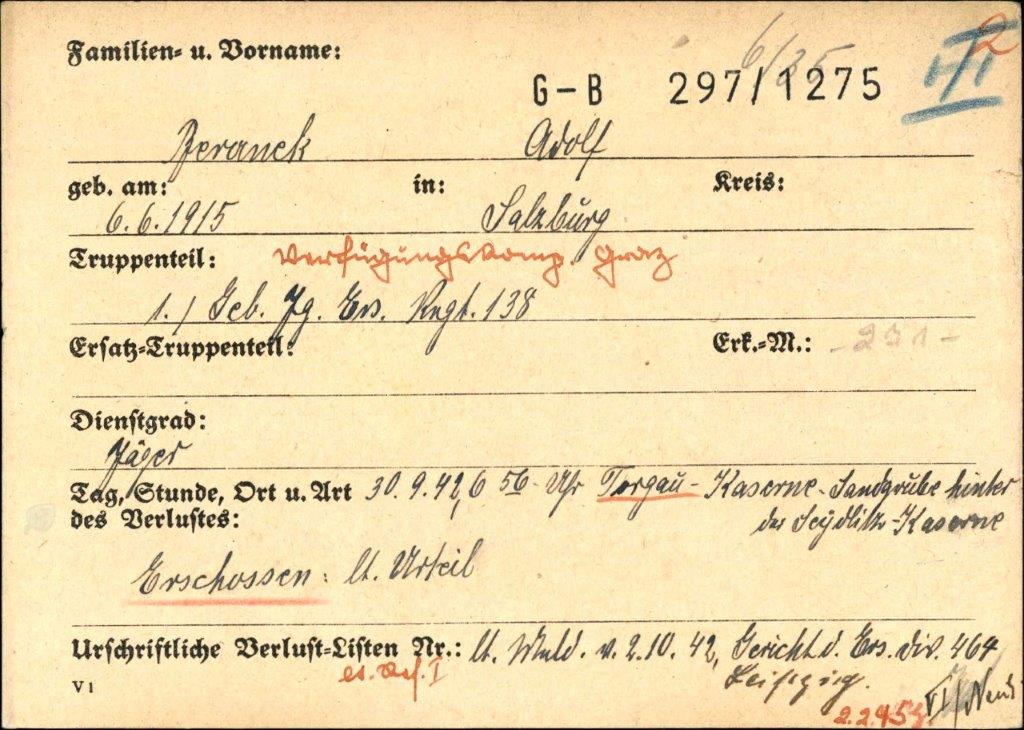 Familien- u. Vorname:
G-B 297/1275
Beranek Adolf
geb. am: in: Kreis:
6.6.1915 Salzburg
Truppenteil: Verfügungskomp. Graz
1./ Geb. Jg. Ers. Regt. 138
Ersatz-Truppenteil: Erk.-M.:
Dienstgrad:
Jäger
Tag, Stunde, Ort u. Art 30.9.42, 6 56 Uhr Torgau - Kaserne - Sandgrube hinter
des Verlustes: der Seydlitz-Kaserne
Erschossen: lt. Urteil
Urschriftliche Verlust-Listen Nr.: lt. Meld. v. 2.10.42, Gericht d. Ers. Div. 464
Leipzig.
V 1